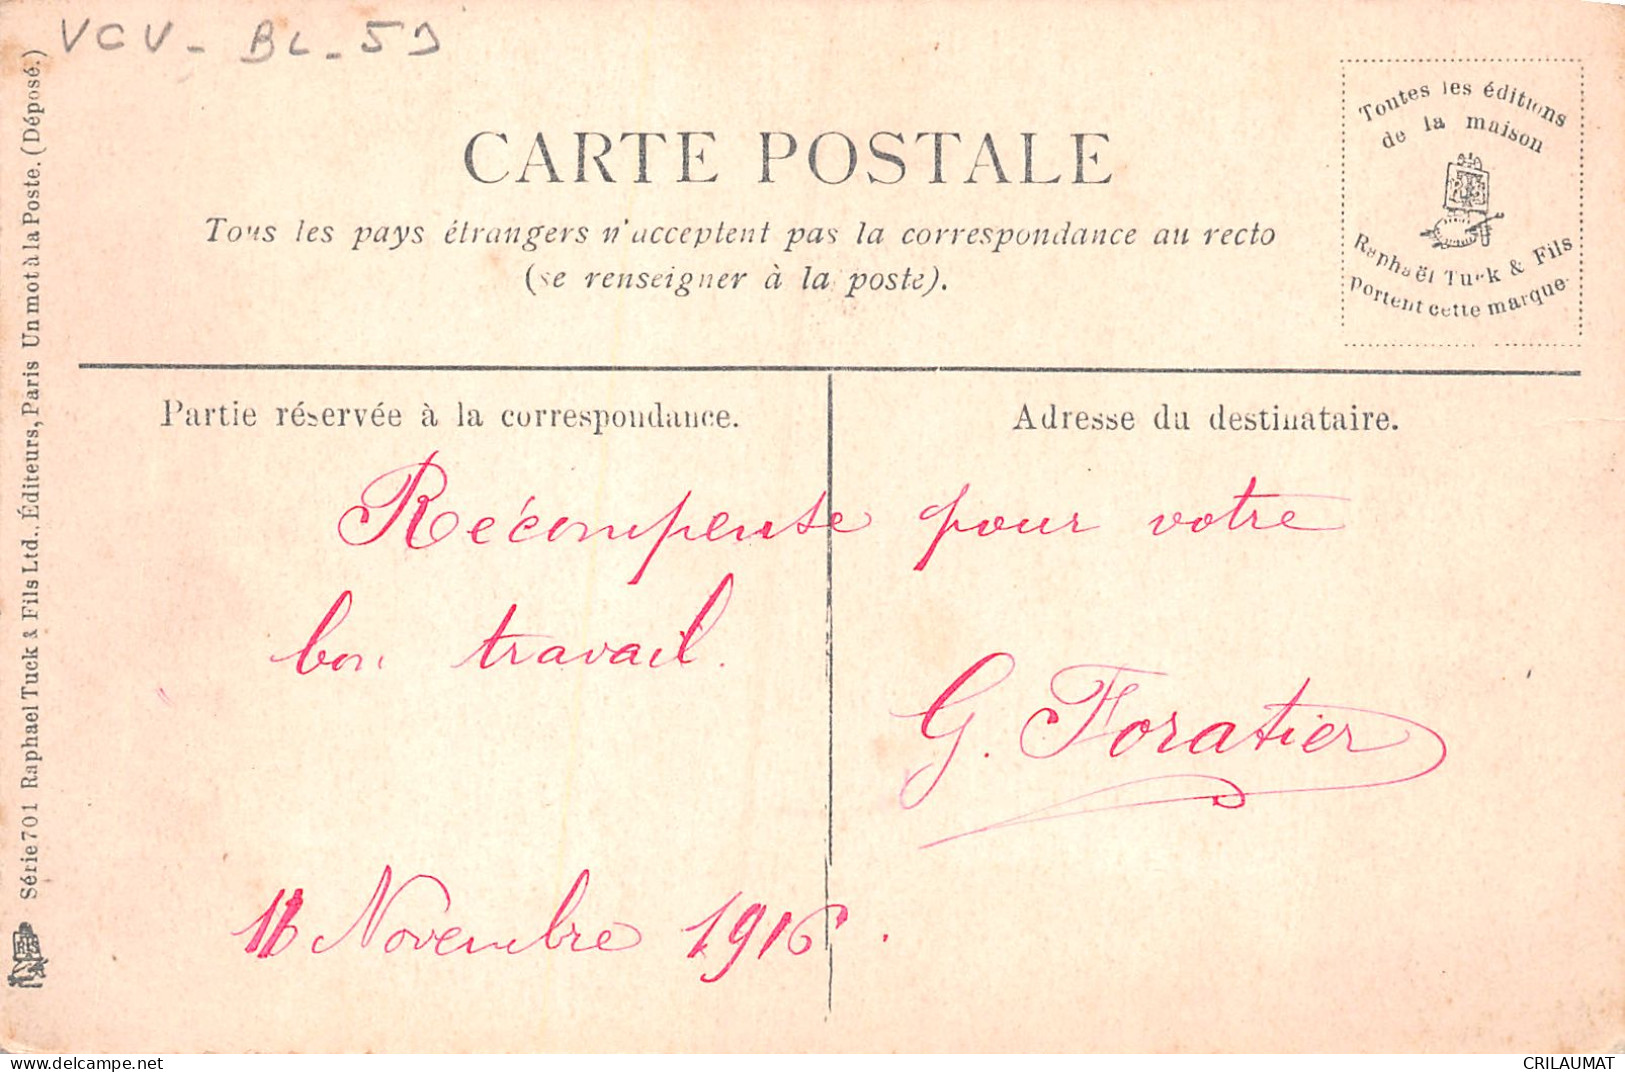 VCV - BL - 59
CARTE POSTALE
Tous les pays étrangers n'acceptent pas la correspondance au recto
(se renseigner à la poste).
Toutes les éditions
de la maison
Raphaël Tuck & Fils
portent cette marque
Partie réservée à la correspondance.
Adresse du destinataire.
Récompense pour votre
bon travail.
G. Foratier
Novembre 1916.
Série 701 Raphael Tuck & Fils Ltd., Éditeurs, Paris Un mot à la Poste. (Déposé.)
CRILAUMAT